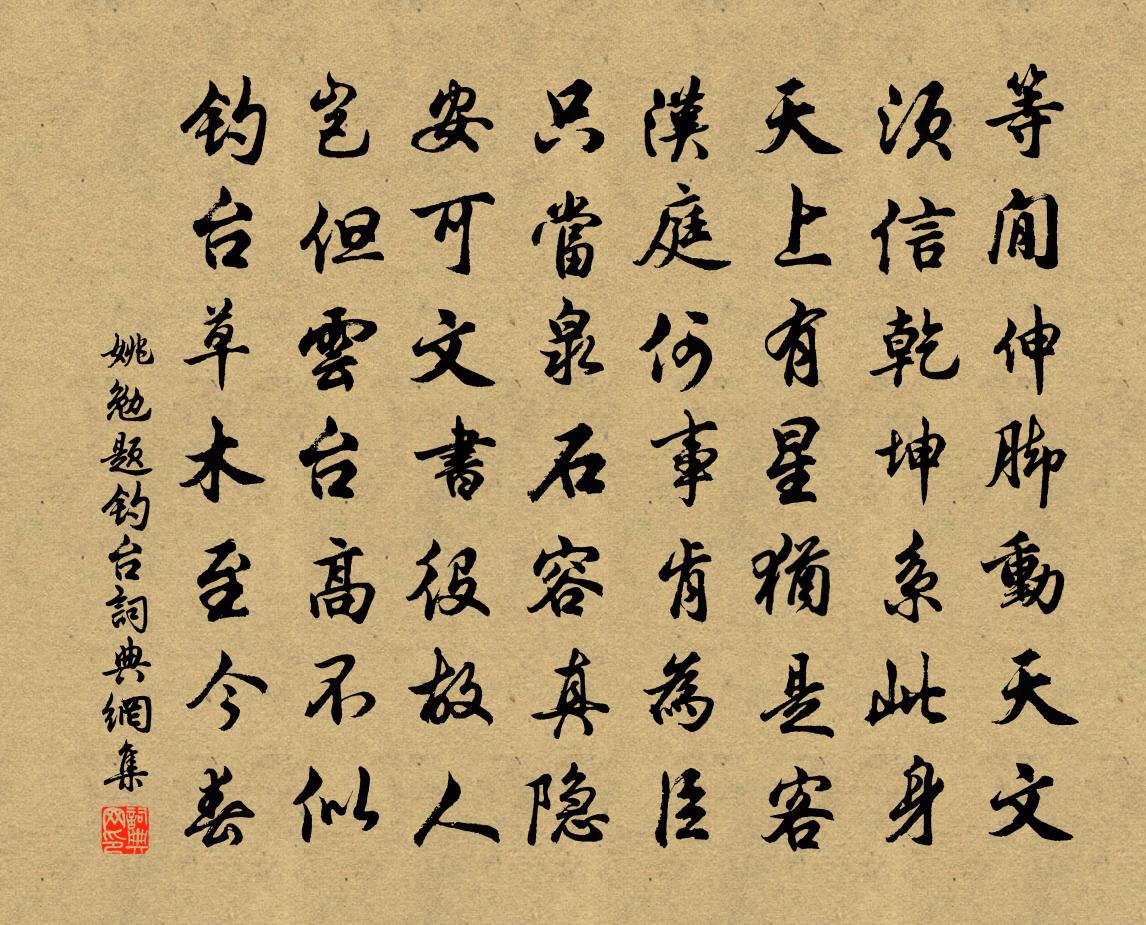 等閒伸脚動天文
須信乾坤系此身
天上有星猶是客
漢庭何事肯為臣
只當泉石容真隐
安可文書役故人
岂但雲台高不似
钓台草木至今春
姚勉題钓台詞典網集
詞典网印